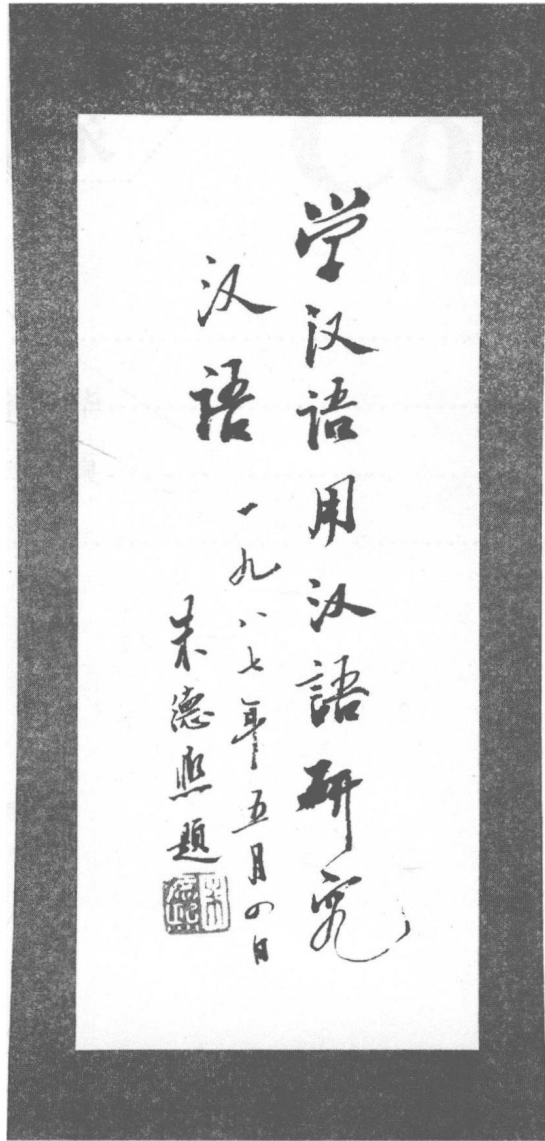 学汉语用汉語研究
汉語
一九八七年五月四日
朱德熙题